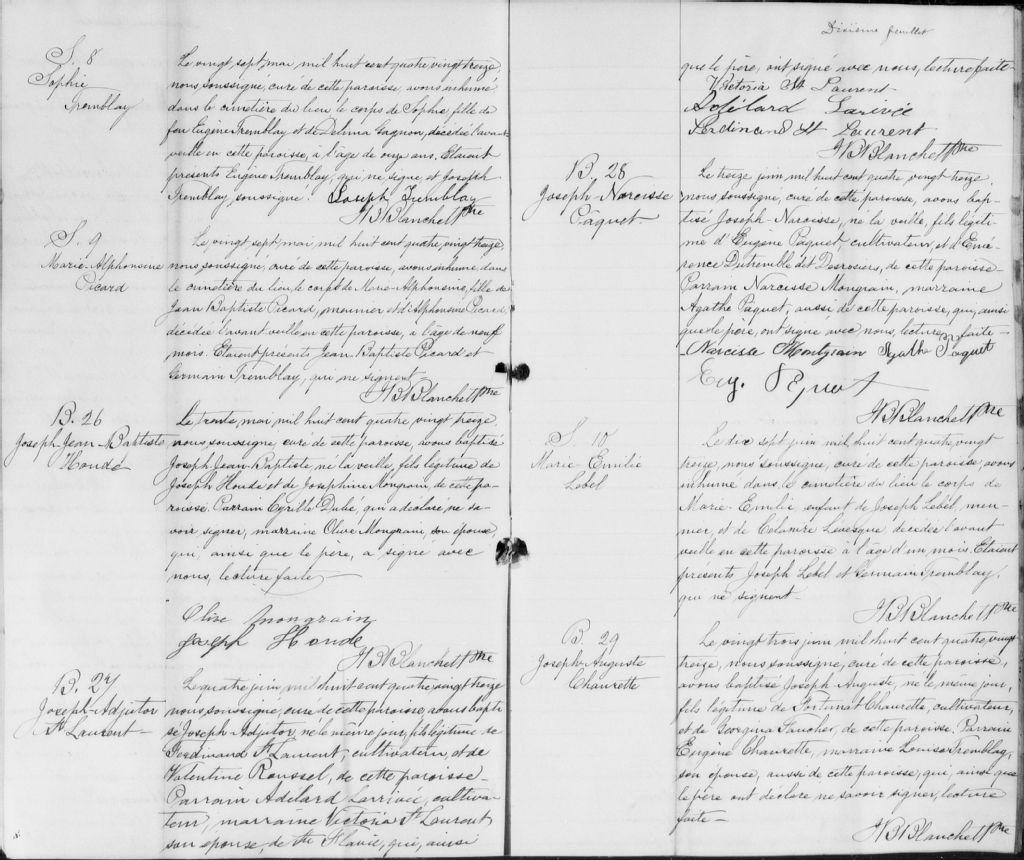 S. 8
Sophie
Tremblay
Le vingt sept mai mil huit cent quatre vingt treize
nous soussigné, curé de cette paroisse, avons inhumé
dans le cimetière du lieu le corps de Sophie, fille de
feu Eugène Tremblay et de Delima Gagnon, décédée l'avant
veille en cette paroisse, à l'âge de onze ans. Etaient
présents Eugène Tremblay, qui ne signe, et Joseph
Tremblay soussigné. Joseph Tremblay
N B Blanchet Ptre
S. 9
Marie-Alphonsine
Picard
Le vingt sept mai mil huit cent quatre vingt treize
nous soussigné, curé de cette paroisse, avons inhumé, dans
le cimetière du lieu, le corps de Marie-Alphonsine, fille de
Jean Baptiste Picard, meunier et d'Alphonsine Picard,
décédée l'avant veille en cette paroisse, à l'âge de neuf
mois. Etaient présents Jean Baptiste Picard et
Germain Tremblay, qui ne signent
N B Blanchet Ptre
B. 26
Joseph-Jean-Baptiste
Houde
Le trente, mai, mil huit cent quatre vingt treize
nous soussigné, curé de cette paroisse, avons baptisé
Joseph Jean-Baptiste, né la veille, fils légitime de
Joseph Houde et de Josephine Mongrain, de cette pa-
roisse. Parrain Cyrille Dubé, qui a déclaré, ne sa-
voir signer, marraine Olive Mongrain, son épouse,
qui, ainsi que le père, a signé avec
nous, lecture faite
Olive Mongrain
Joseph Houde
N B Blanchet Ptre
B. 27
Joseph-Adjutor
St Laurent
Le quatre juin, mil huit cent quatre vingt treize
nous, soussigné, curé de cette paroisse, avons bapti-
sé Joseph-Adjutor, né le même jour, fils légitime de
Ferdinand St Laurent, cultivateur, et de
Valentine Roussel, de cette paroisse
Parrain Adélard Larrivée, cultiva-
teur, marraine Victoria St Laurent
son épouse, de Ste Flavie, qui, ainsi
Dixième feuillet
que le père, ont signé avec nous, lecture faite
Victoria St Laurent
Adélard Larivée
Ferdinand St Laurent
N B Blanchet Ptre
B. 28
Joseph-Narcisse
Paquet
Le treize juin mil huit cent quatre vingt treize,
nous soussigné, curé de cette paroisse, avons bap-
tisé Joseph-Narcisse, né la veille, fils légiti-
me d'Eugène Paquet, cultivateur, et d'Emé-
rence Dutremble dit Desrosiers, de cette paroisse
Parrain Narcisse Mongrain, marraine
Agathe Paquet, aussi de cette paroisse, qui, ainsi
que le père, ont signé avec nous, lecture faite
Narcisse Montgrain Agathe Paquet
Eug. Paquet
N B Blanchet Ptre
S. 10
Marie Emilie
Lebel
Le dix sept juin mil huit cent quatre vingt
treize, nous soussigné, curé de cette paroisse, avons
inhumé dans le cimetière du lieu le corps de
Marie-Emilie enfant de Joseph Lebel, meu-
nier, et de Celanire Levesque, décédée l'avant
veille en cette paroisse à l'âge d'un mois. Etaient
présents Joseph Lebel et Germain Tremblay,
qui ne signent
N B Blanchet Ptre
B. 29
Joseph-Auguste
Chaurette
Le vingt trois juin mil huit cent quatre vingt
treize, nous soussigné, curé de cette paroisse,
avons baptisé Joseph Auguste, né le même jour,
fils légitime de Fortunat Chaurette, cultivateur,
et de Georgina Gaucher, de cette paroisse. Parrain
Eugène Chaurette, marraine Louise Tremblay,
son épouse, aussi de cette paroisse, qui, ainsi que
le père ont déclaré ne savoir signer, lecture
faite
N B Blanchet Ptre